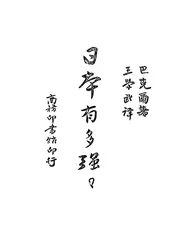 巴克爾著
王學武譯
日本有多强？
商務印書館印行